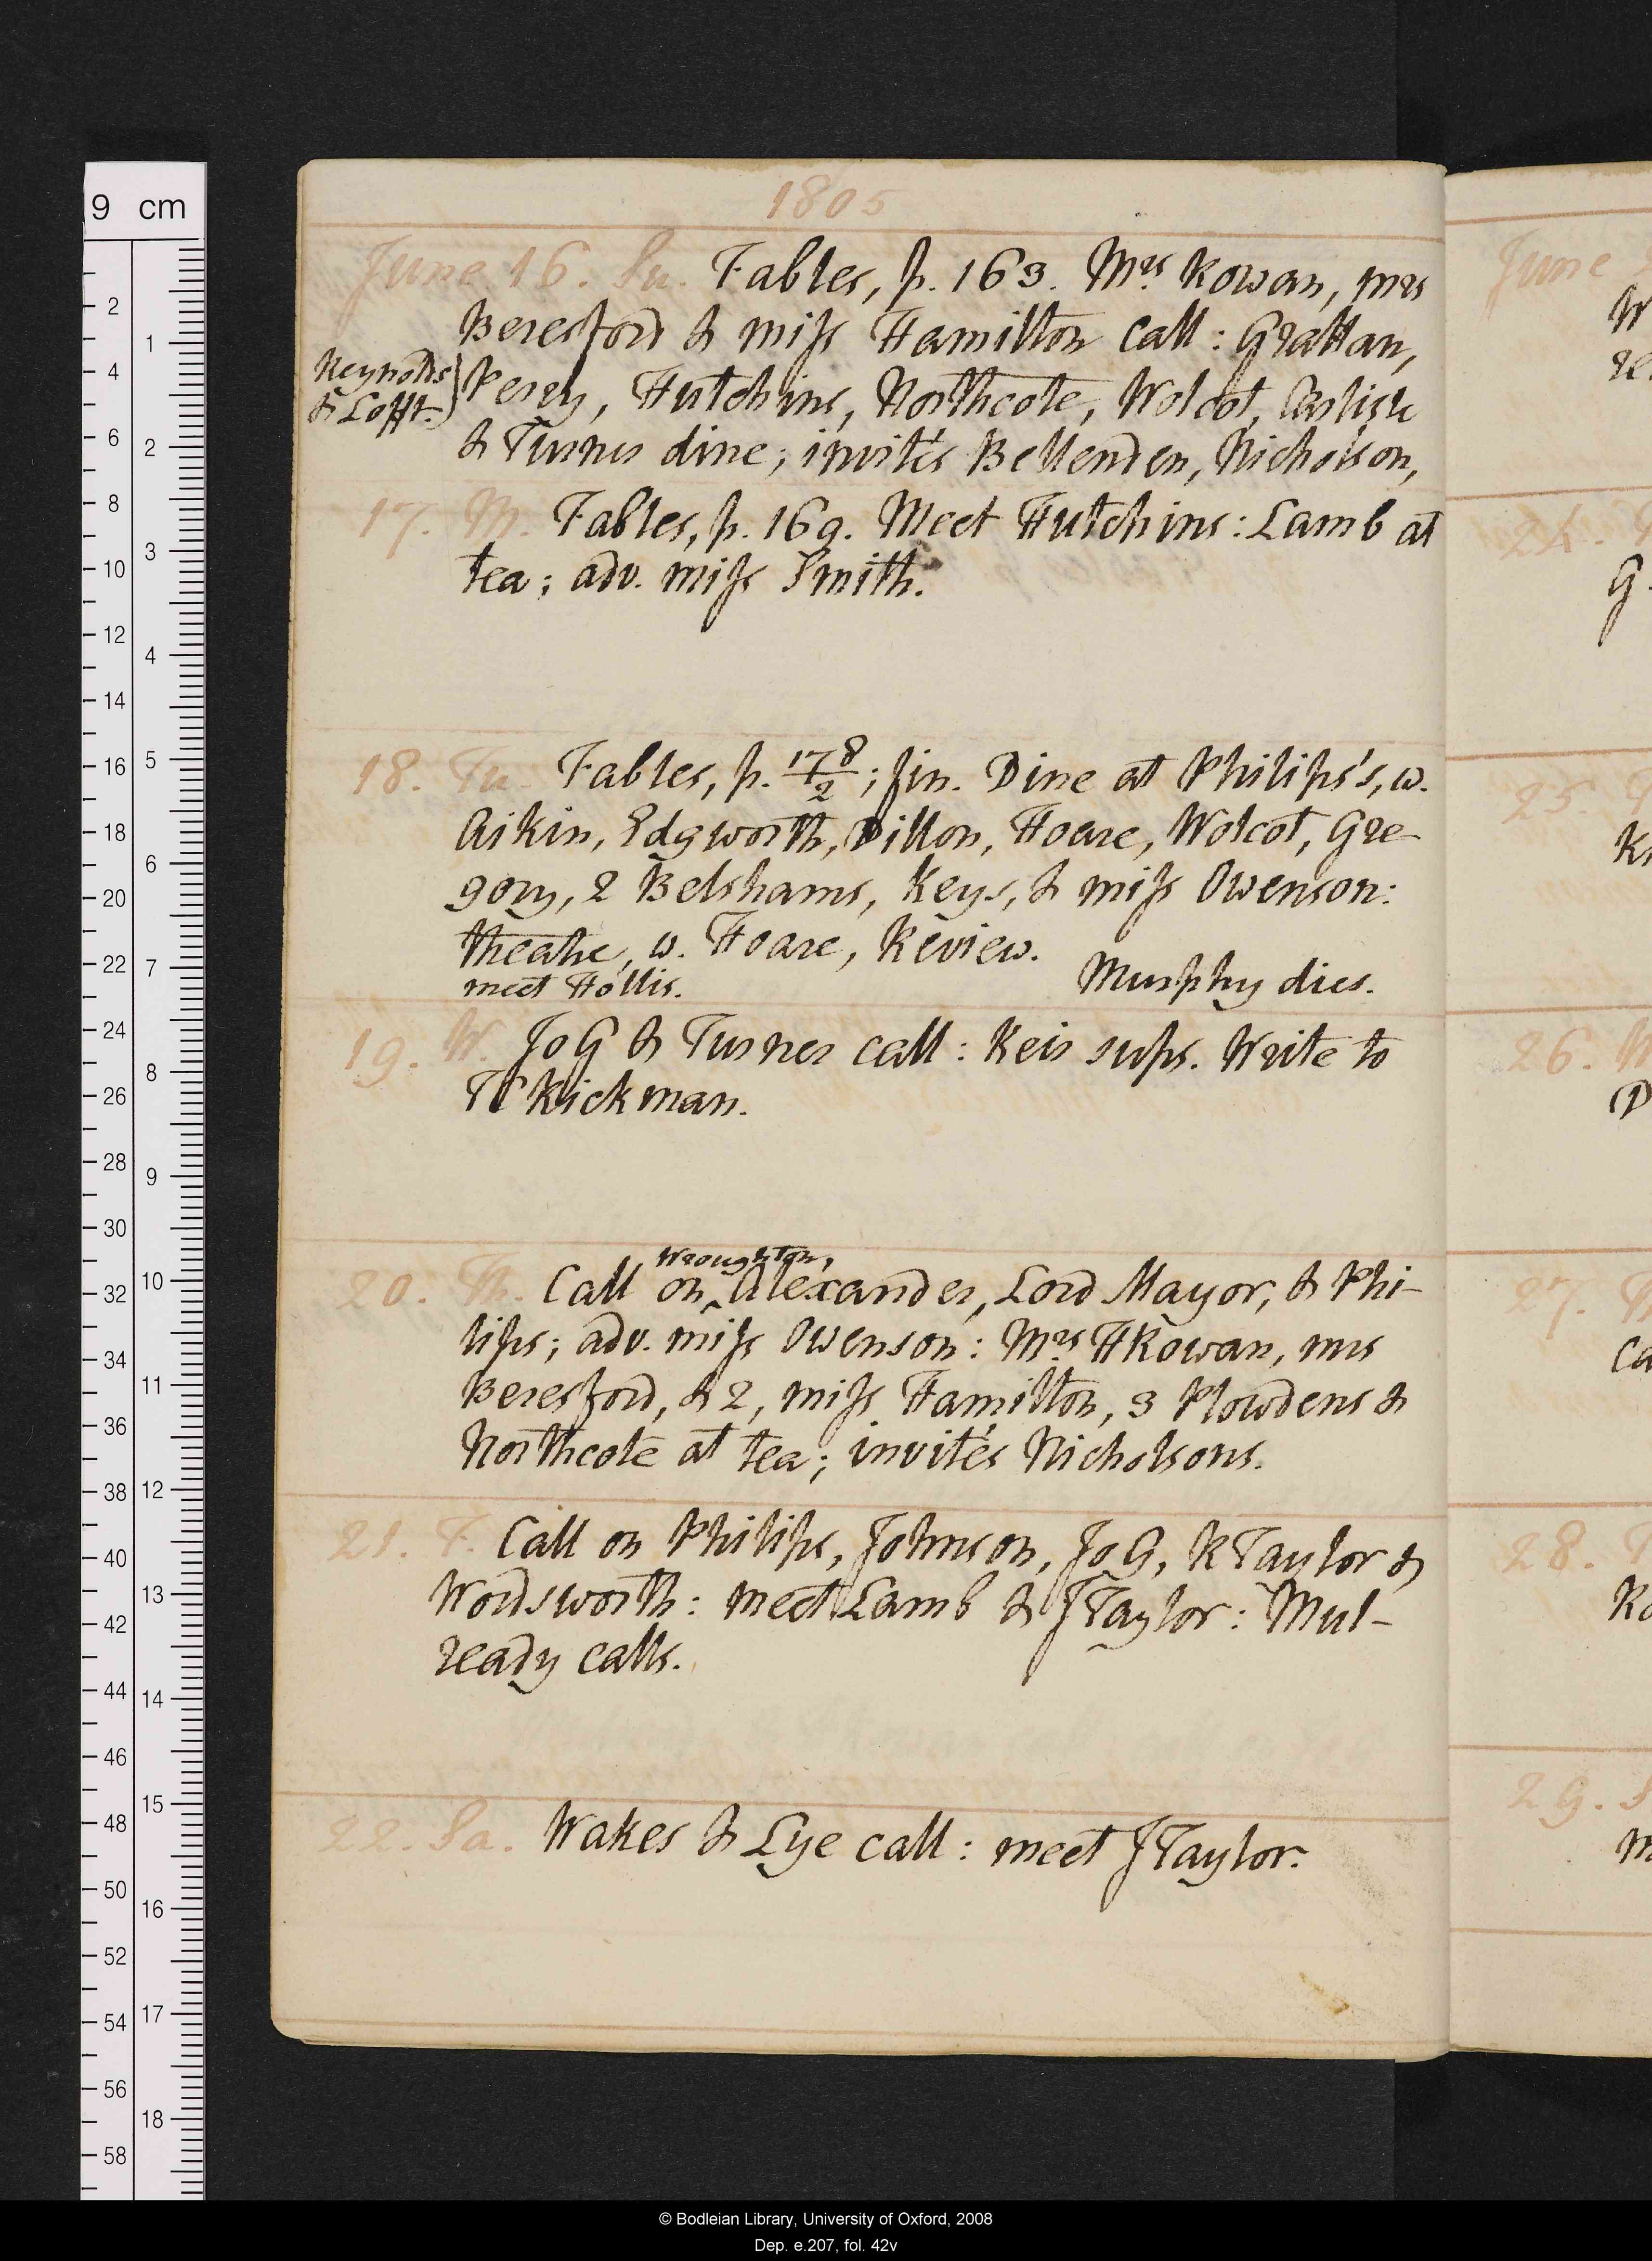 1805
June 16. Su. Fables, p. 163. Mrs Rowan, mrs
Beresford & miss Hamilton call: Grattan,
Perry, Hutchins, Northcote, Wolcot, Carlisle
& Turner dine; invités Bellenden, Nicholson,
Reynolds
& Lofft.
17. M. Fables, p. 169. Meet Hutchins: Lamb at
tea; adv. miss Smith.
18. Tu. Fables, p. 178/2; fin. Dine at Philips's, w.
Aikin, Edgworth, Dillon, Hoare, Wolcot, Gre-
gory, 2 Belshams, Keys, & miss Owenson:
theatre, w. Hoare, Review.
meet Hollis.
Murphy dies.
19. W. JoG & Turner call: Keir sups. Write to
TC Rickman.
20. Th. Call on Wroughton, Alexander, Lord Mayor, & Phi-
lips; adv. miss Owenson: Mrs HRowan, mrs
Beresford, & 2, miss Hamilton, 3 Plowdens &
Northcote at tea; invités Nicholsons.
21. F. Call on Philips, Johnson, JoG, RTaylor &
Wordsworth: meet Lamb & JTaylor: Mul-
ready calls.
22. Sa. Wakes & Lye call: meet JTaylor.
June
W
re
24.
G.
25
26.
(D
27.
Ca
28.
29. S
m
9 cm
2
4
6
8
10
12
14
16
18
20
22
24
26
28
30
32
34
36
38
40
42
44
46
48
50
52
54
56
58
1
2
3
4
5
6
7
8
9
10
11
12
13
14
15
16
17
18
© Bodleian Library, University of Oxford, 2008
Dep. e.207, fol. 42v